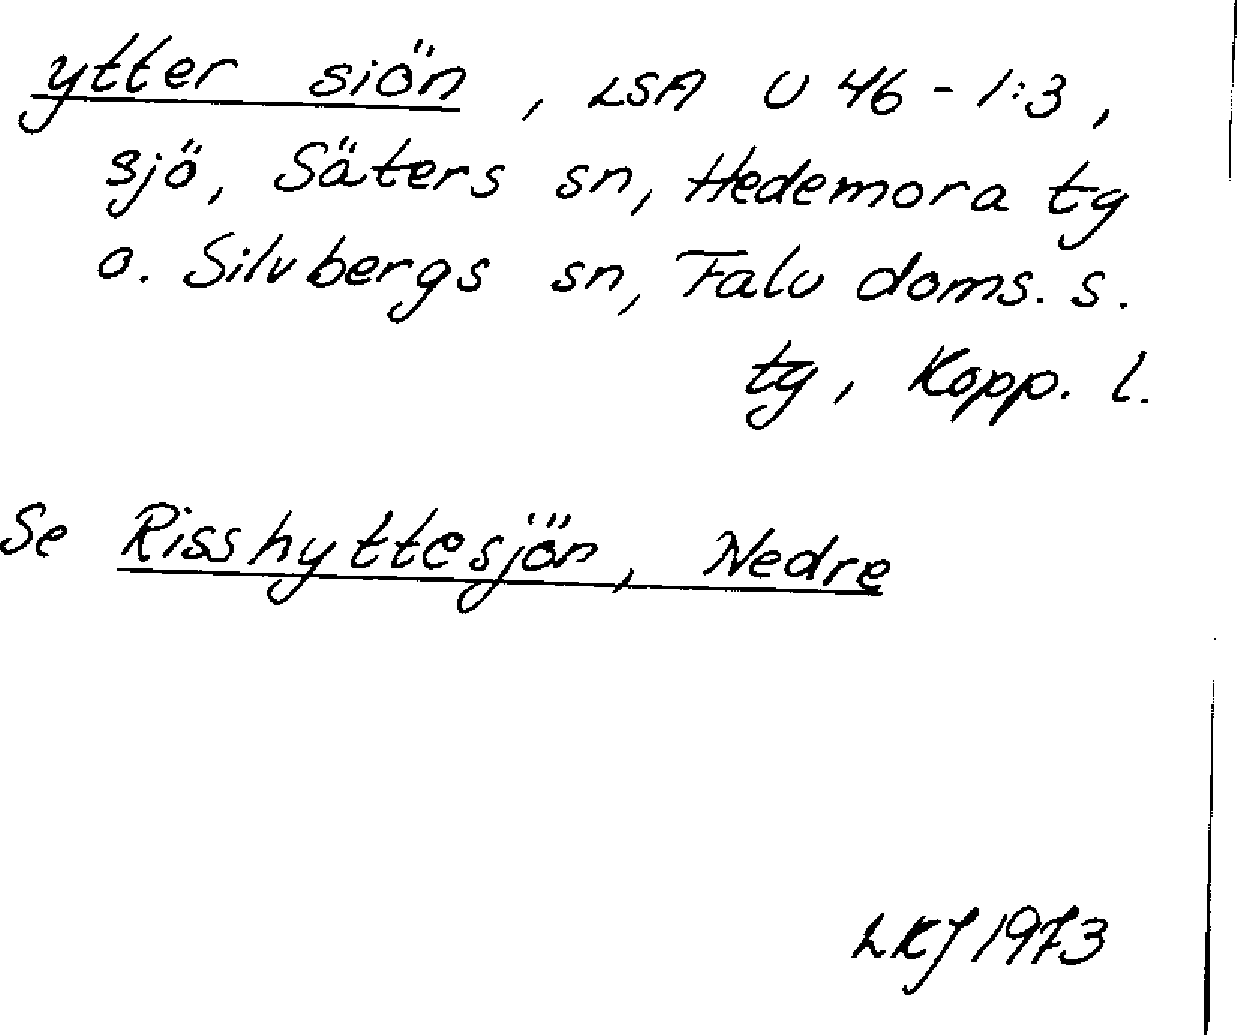 ytter siön, LSA U 46-1:3,
sjö, Säters sn, Hedemora tg
o. Silvbergs sn, Falu doms. s.
tg, Kopp. l.
Se Risshyttesjön, Nedre
LKJ 1973